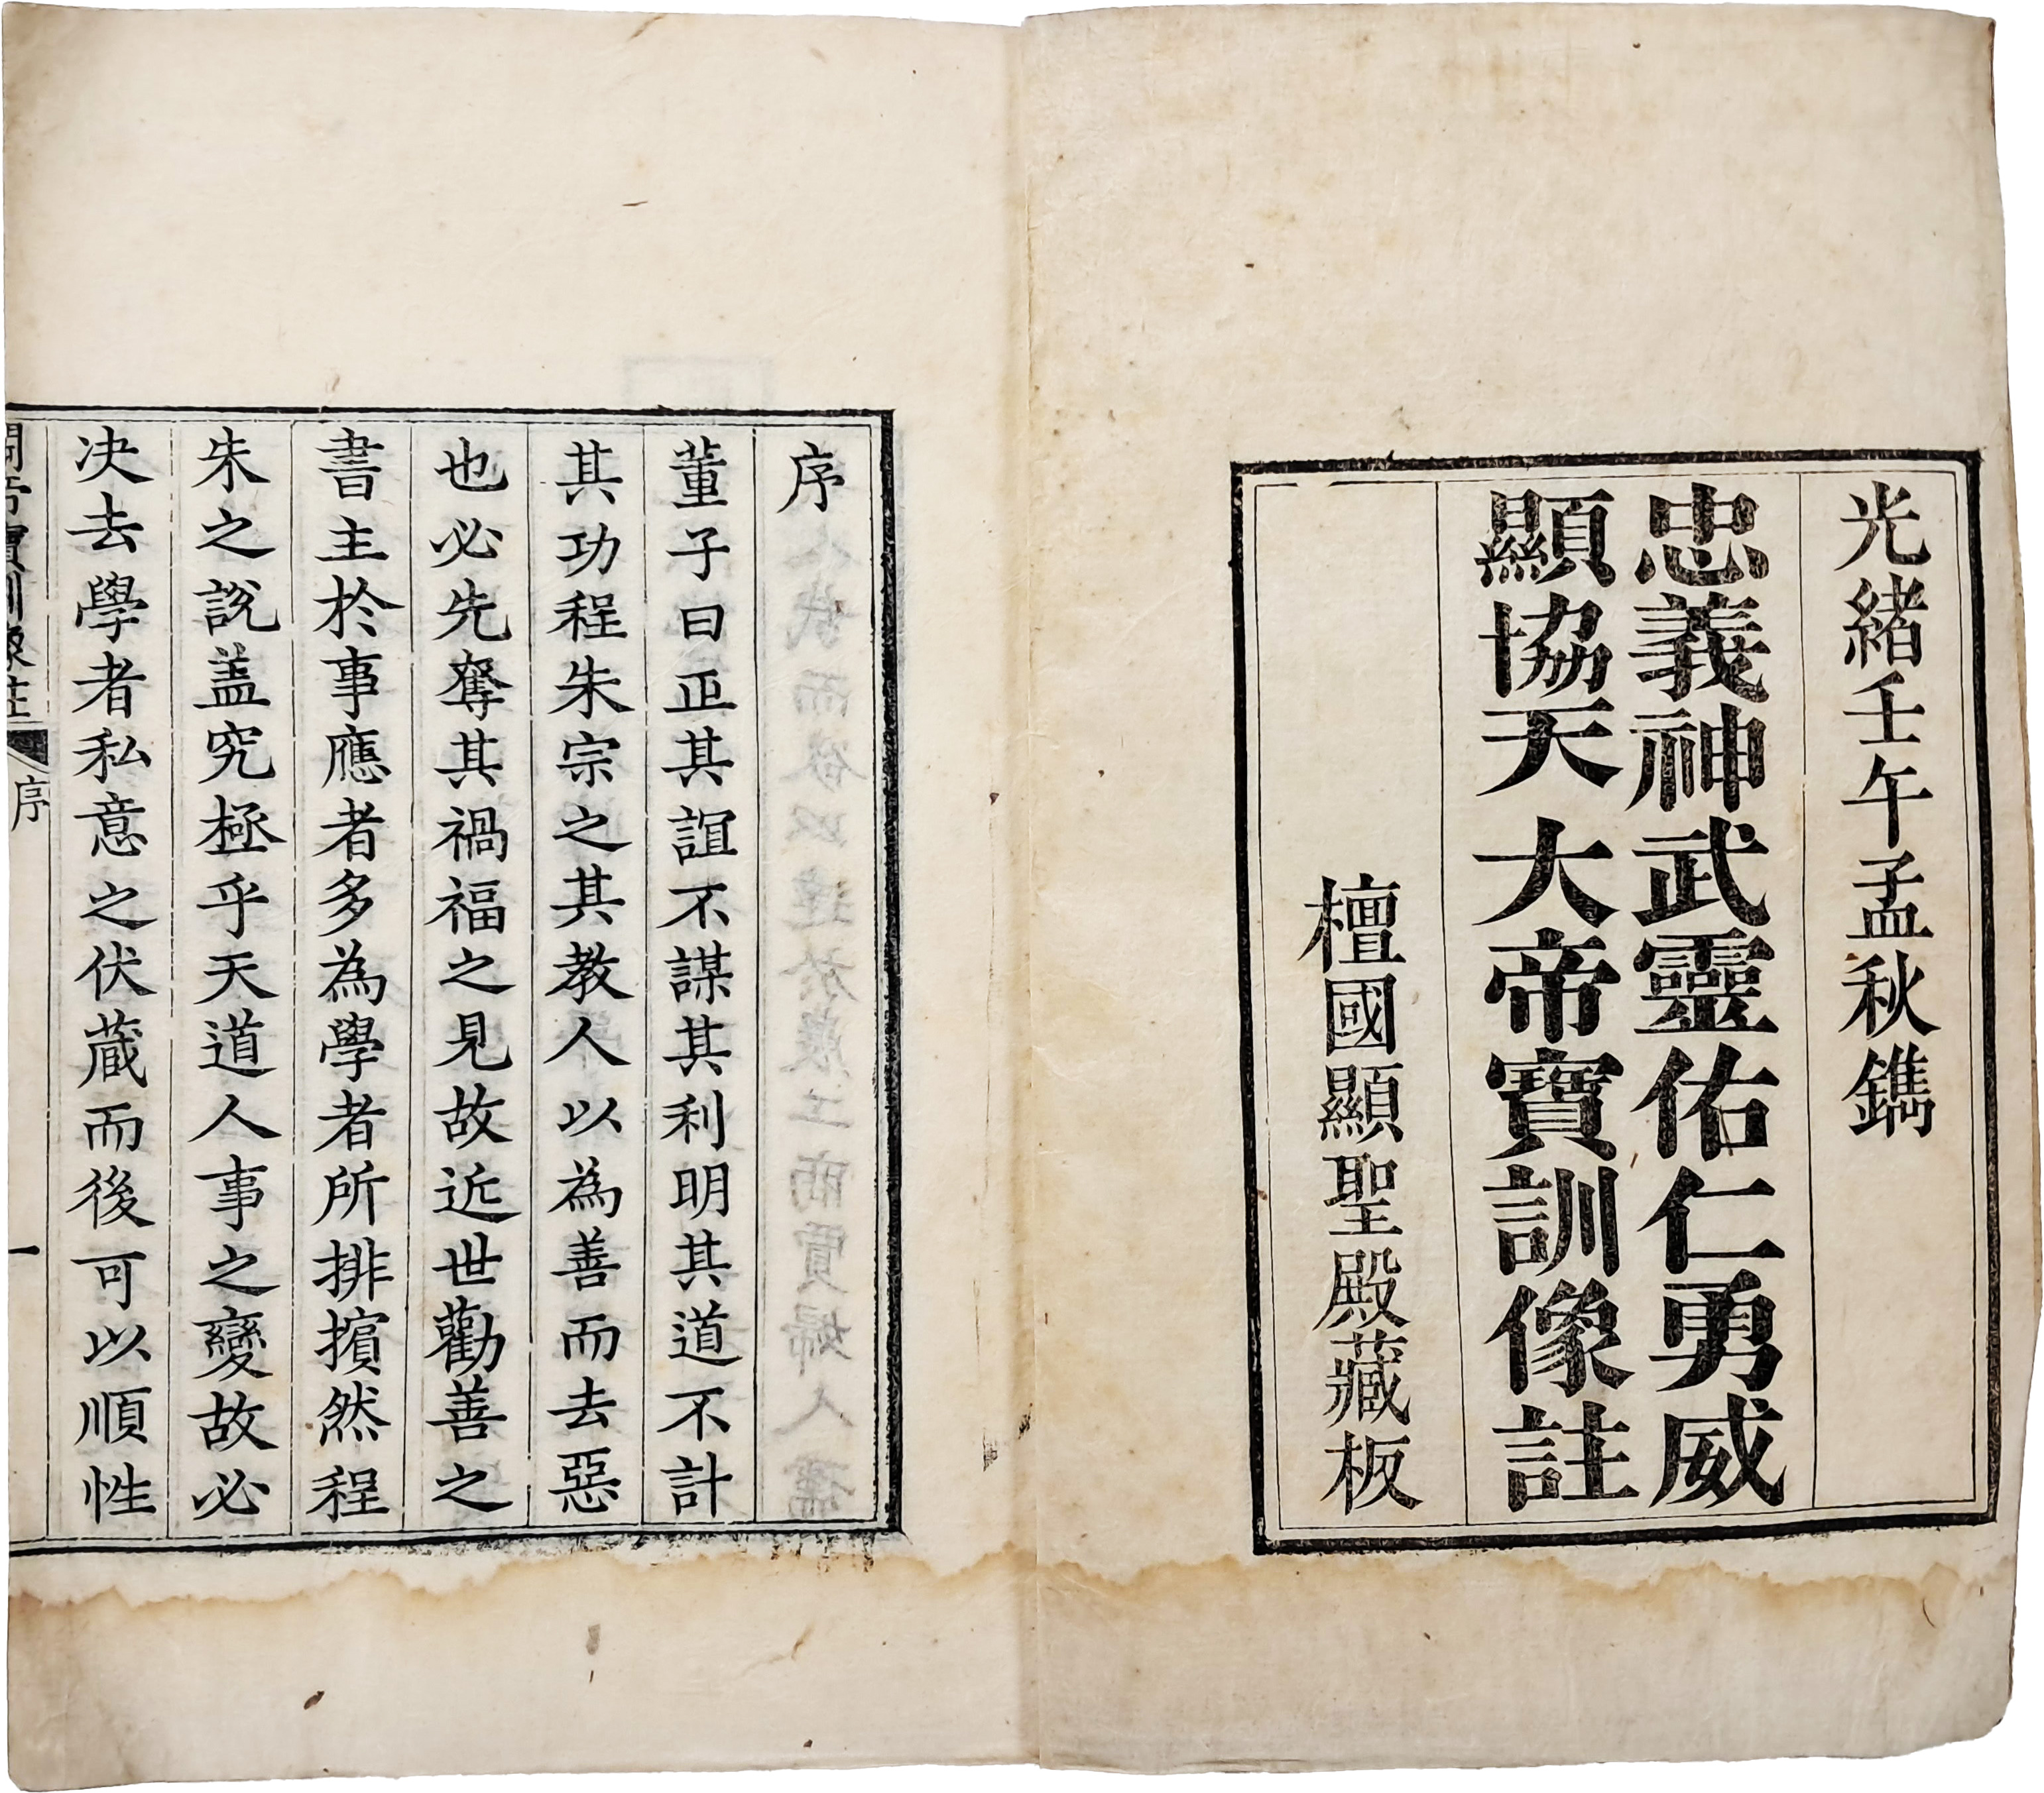 光緒壬午孟秋鐫
忠義神武靈佑仁勇威
顯協天大帝寶訓像註
檀國顯聖殿藏板
序
董子曰正其誼不謀其利明其道不計
其功程朱宗之其教人以為善而去惡
也必先奪其禍福之見故近世勸善之
書主於事應者多為學者所排擯然程
朱之說盖究極乎天道人事之變故必
决去學者私意之伏藏而後可以順性
寶訓像註 序 一